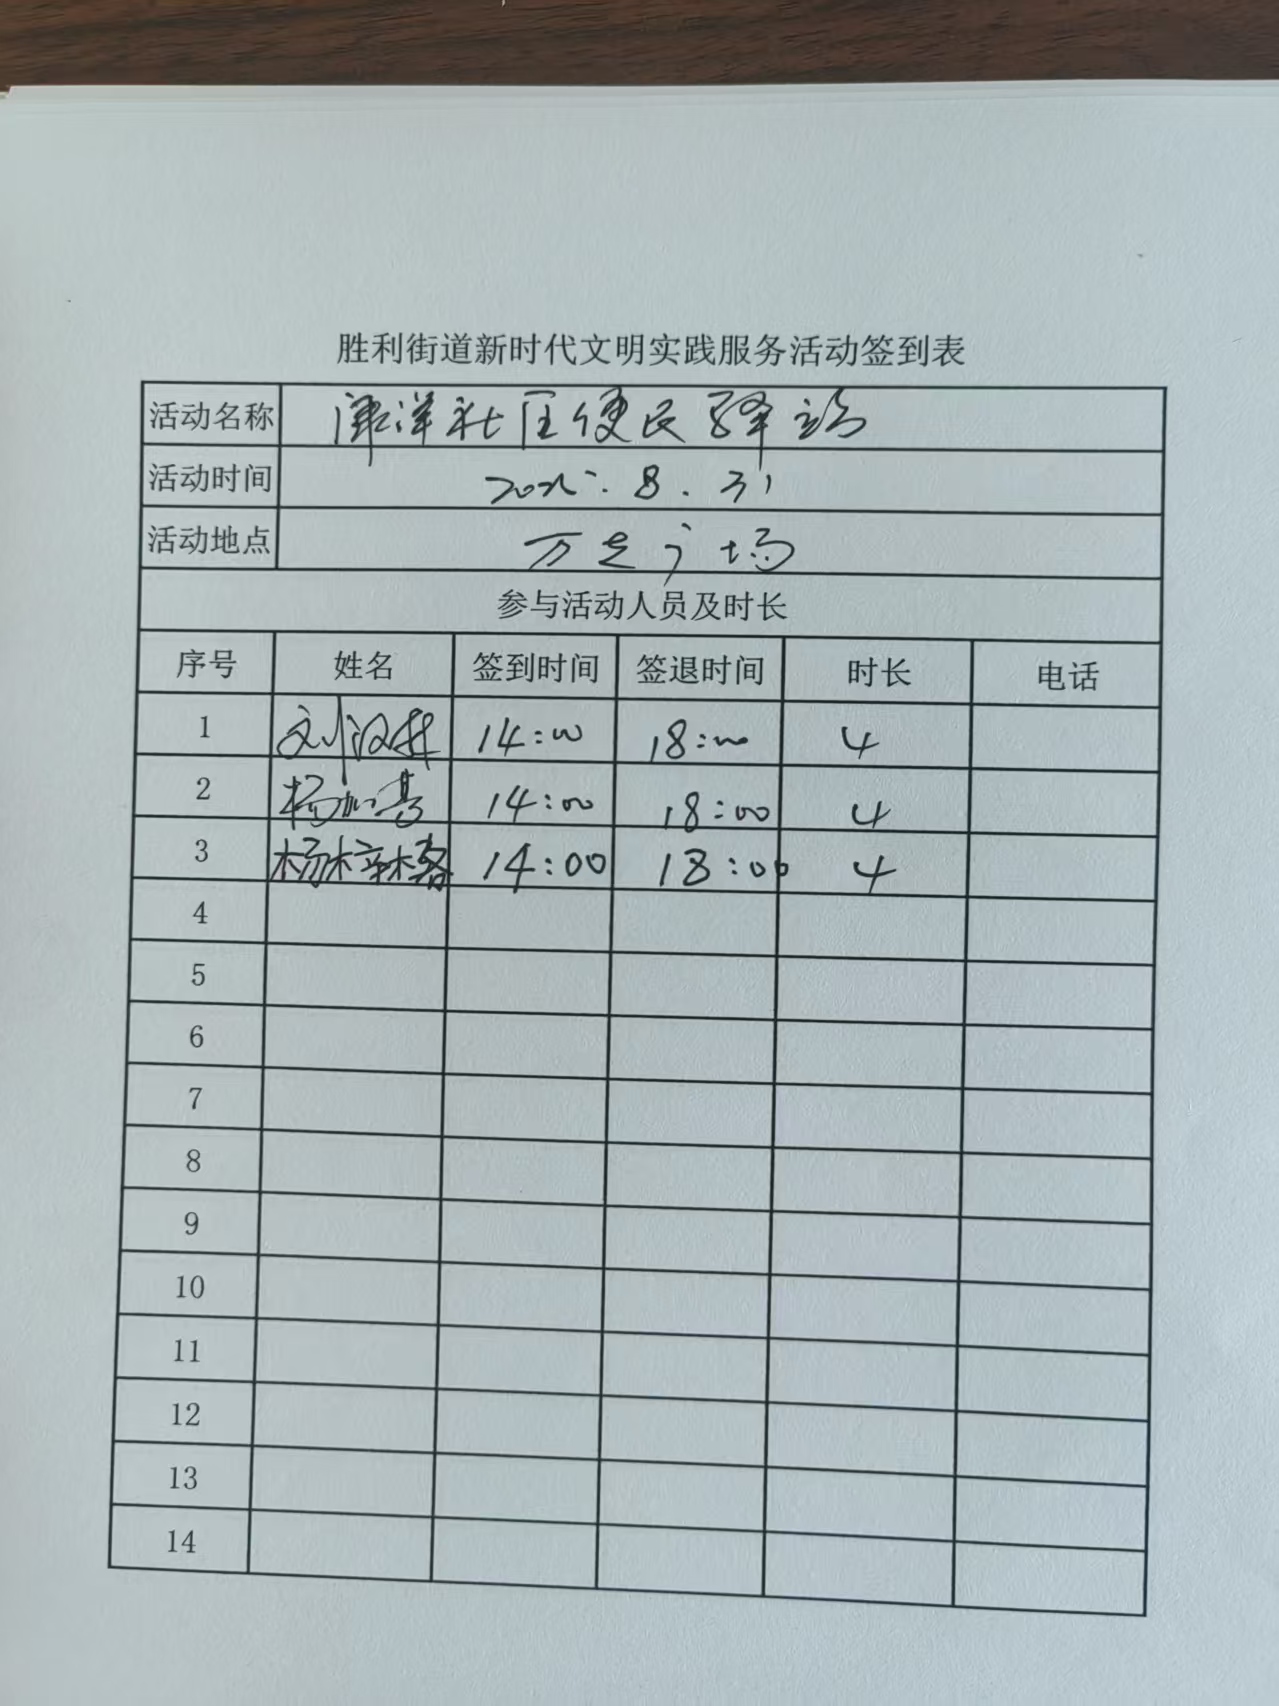 胜利街道新时代文明实践服务活动签到表
活动名称 津洋社区便民驿站
活动时间 2025.8.31
活动地点 万达广场
参与活动人员及时长
序号 姓名 签到时间 签退时间 时长 电话
1 刘汉 14:00 18:00 4
2 杨 14:00 18:00 4
3 杨梓 14:00 18:00 4
4
5
6
7
8
9
10
11
12
13
14